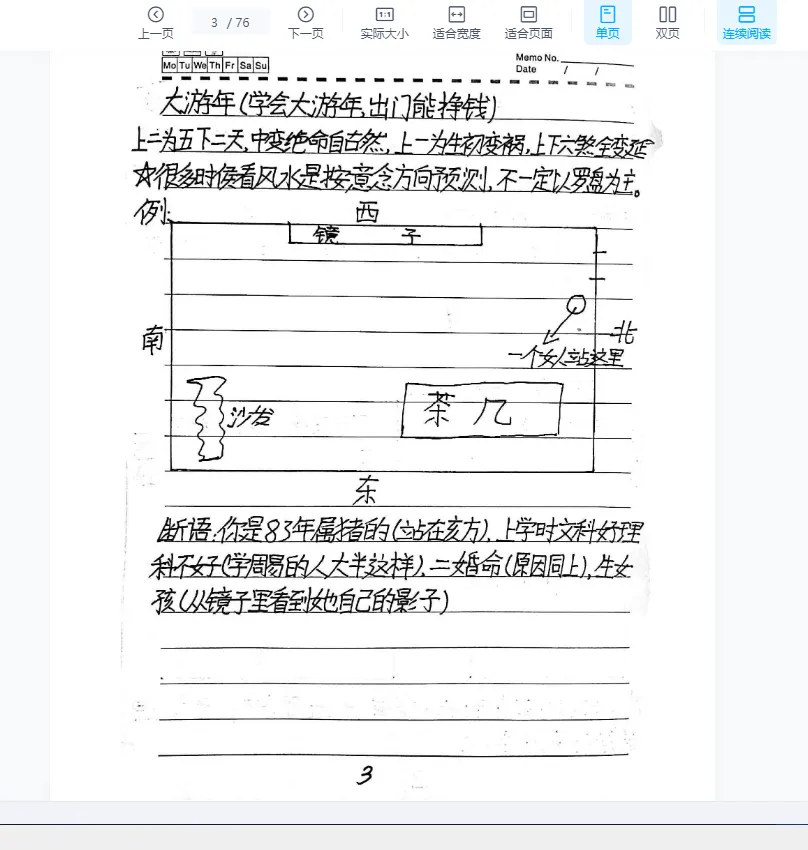 上一页 3 / 76 下一页 1:1 实际大小 适合宽度 适合页面 单页 双页 连续阅读
Mo Tu We Th Fr Sa Su
Memo No.
Date / /
大游年(学会大游年,出门能挣钱)
上二为五下二天,中变绝命自古然,上一为生初变祸,上下六煞全变延
☆很多时候看风水是按意念方向预测,不一定以罗盘为主。
例:
西
镜 子
南
北
一个女人站这里
沙发
茶 几
东
断语:你是83年属猪的(站在亥方),上学时文科好理
科不好(学周易的人大半这样),二婚命(原因同上),生女
孩(从镜子里看到她自己的影子)
3